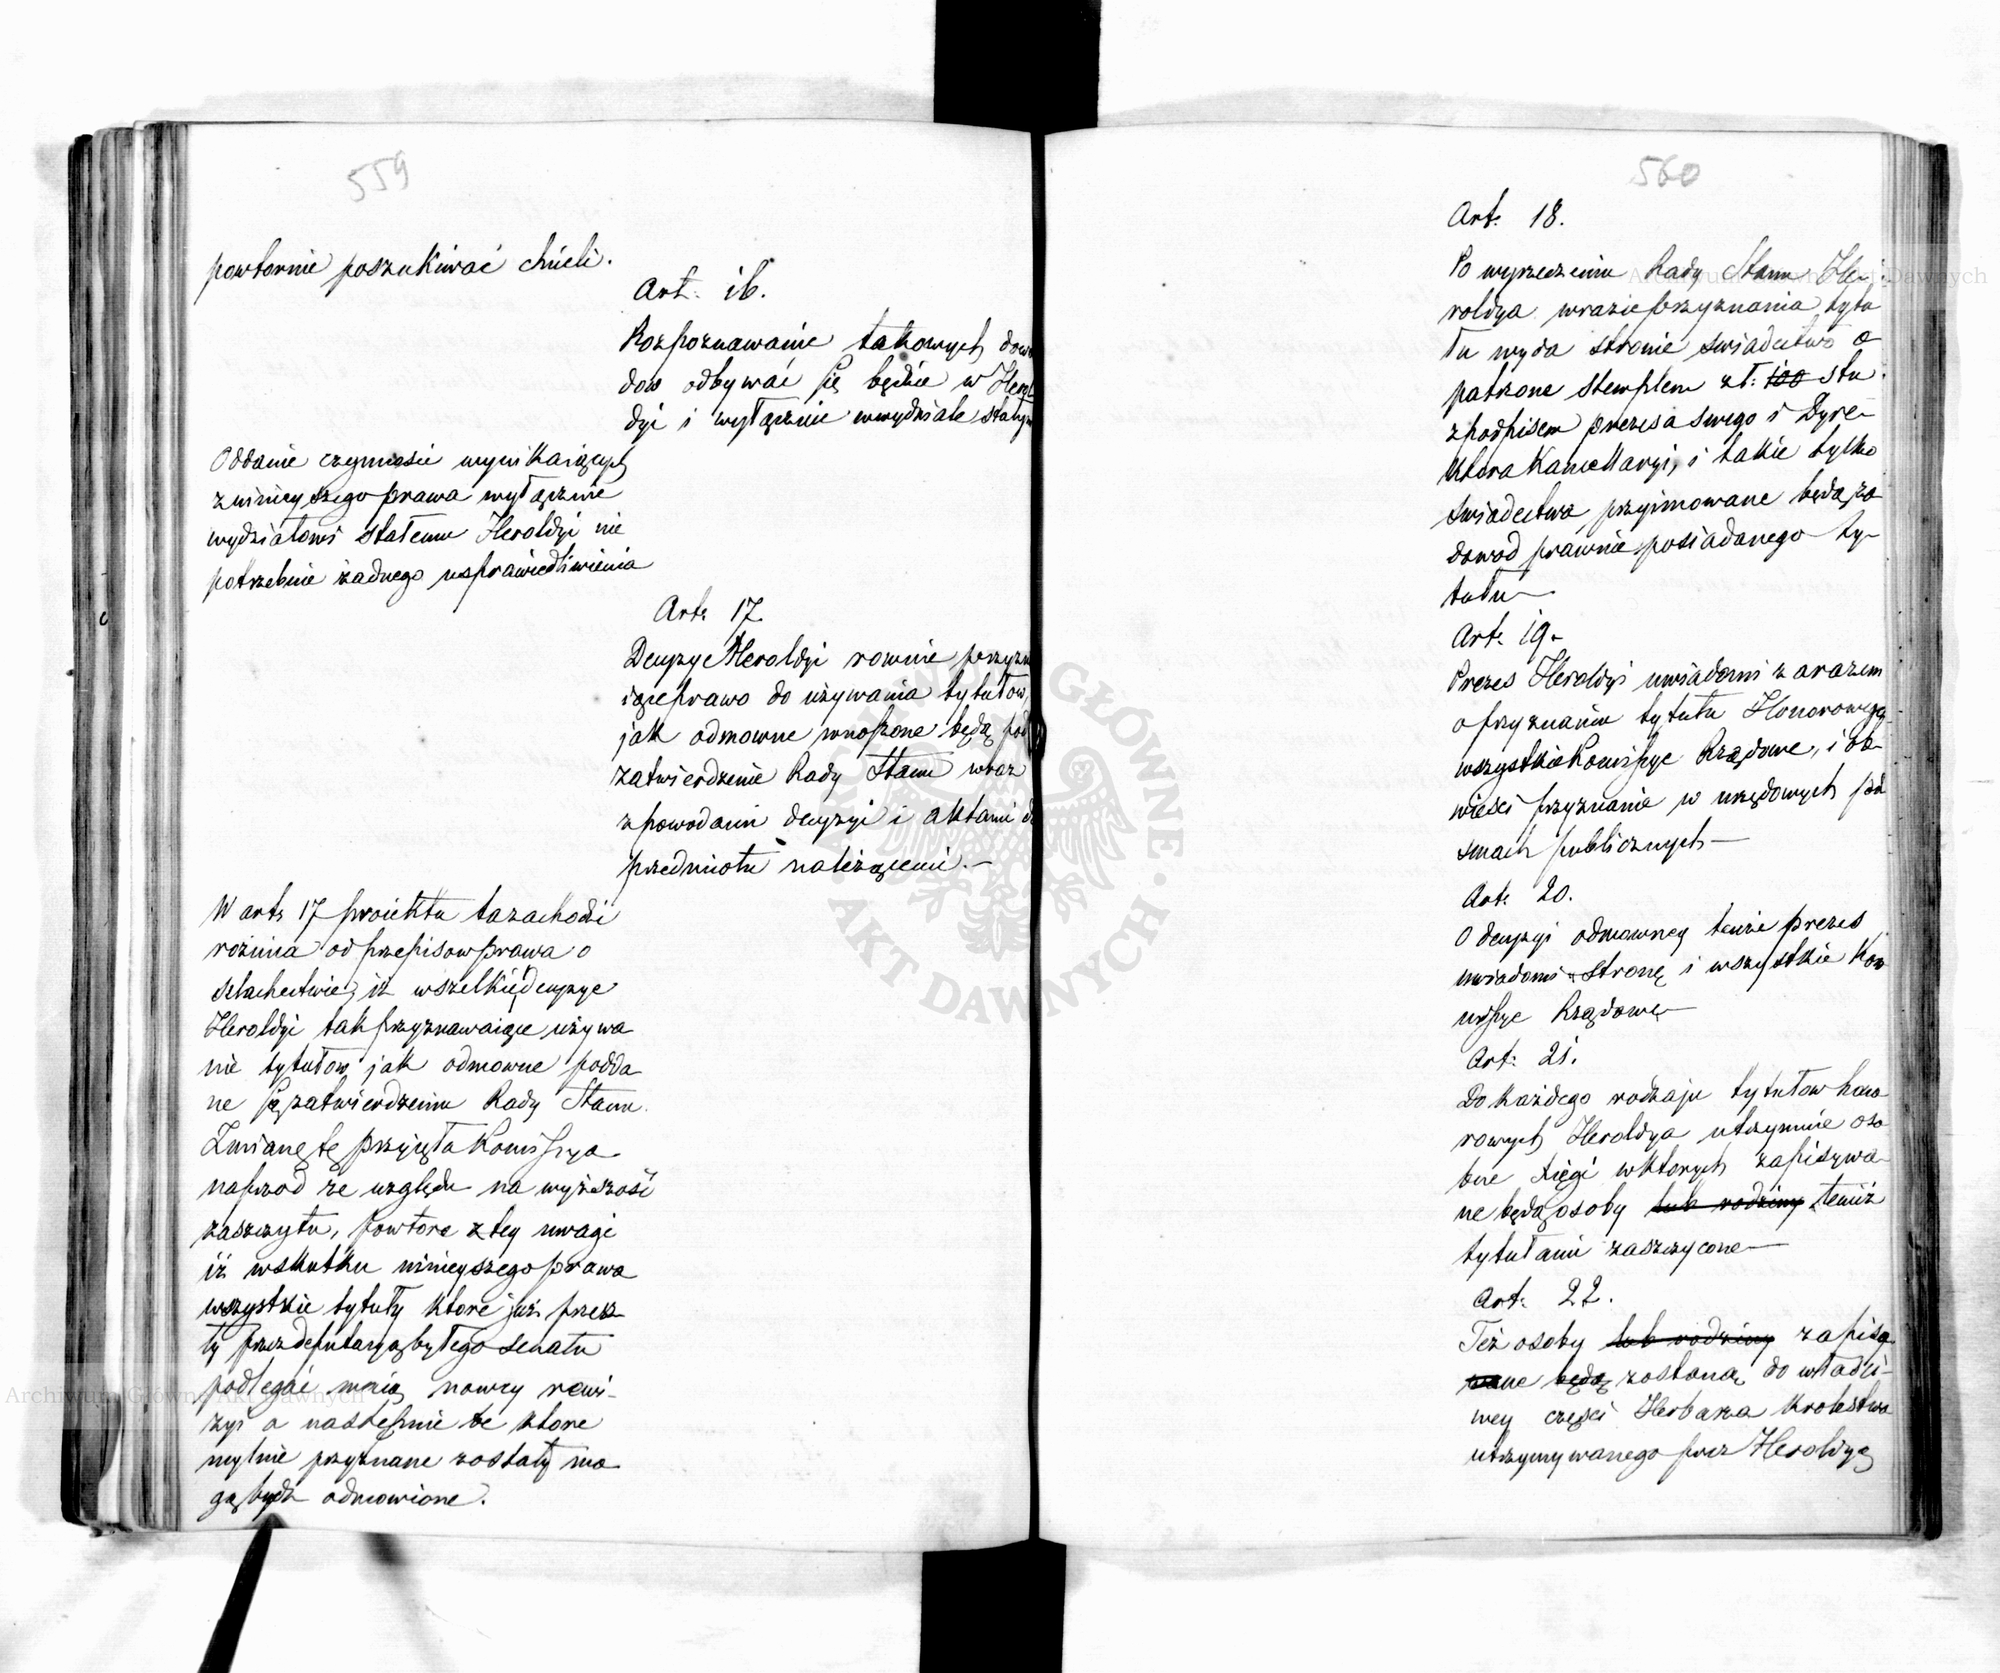 559
powtornie poszukiwać chcieli.
Art. 16.
Rozpoznawanie takowych dowo
dow odbywać się będzie w Herol
dyi i wyłącznie w wydziale stałym
Oddanie czynnosci wynikaiących
z ninieyszego prawa wyłącznie
wydziałowi stałemu Heroldyi nie
potrzebuie żadnego usprawiedliwienia
Art. 17.
Decyzye Heroldyi rownie przyzna
iące prawo do używania tytułow,
jak odmowne wnoszone będą pod
zatwierdzenie Rady Stanu wraz
z powodami decyzyi i aktami do
przedmiotu należącemi.—
W art. 17 proiektu ta zachodzi
rożnica od przepisow prawa o
szlachectwie, iż wszelkie decyzye
Heroldyi tak przyznawaiące używa
nie tytułow jak odmowne podda
ne są zatwierdzeniu Rady Stanu.
Zmianę tę przyięła Kommissya
naprzod ze względu na wyższość
zaszczytu, powtore z tey uwagi
iż w skutku ninieyszego prawa
wszystkie tytuły ktore już przesz
ły przez deputacyą byłego senatu
podlegać maią nowey rewi-
zyi a następnie że ktore
mylnie przyznane zostały mo
gą bydź odmowione.
560
Art. 18.
Po wyrzeczeniu Rady Stanu He-
roldya w razie przyznania tytu
łu wyda stronie swiadectwo o
patrzone stemplem zł: 100 stu
z podpisem prezesa swego i Dyre-
ktora Kancellaryi, i takie tylko
swiadectwa przyimowane będą za
dowod prawnie posiadanego ty-
tułu—
Art. 19.
Prezes Heroldyi uwiadomi zarazem
o przyznaniu tytułu Honorowego
wszystkie Kommissye Rządowe, i ob-
wieści przyznanie w urzędowych pis
smach publicznych—
Art. 20.
O decyzyi odmowney tenże prezes
uwiadomi stronę i wszystkie Kom
missye Rządowe—
Art. 21.
Do każdego rodzaju tytułow hono
rowych Heroldya utrzymuie oso
bne xięgi w ktorych zapisywa
ne będą osoby lub rodziny temiż
tytułami zaszczycone—
Art. 22.
Też osoby lub rodziny zapisa
ne będą zostaną do właści-
wey części Herbarza Krolestwa
utrzymywanego przez Heroldyą